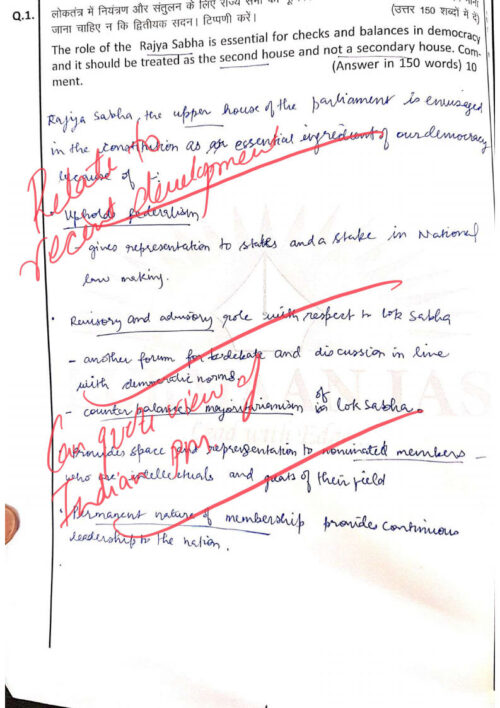 Q.1. लोकतंत्र में नियंत्रण और संतुलन के लिए राज्य सभा
जाना चाहिए न कि द्वितीयक सदन। टिप्पणी करें।
(उत्तर 150 शब्दों में दें)
The role of the Rajya Sabha is essential for checks and balances in democracy
and it should be treated as the second house and not a secondary house. Com-
ment.
(Answer in 150 words) 10
Rajya Sabha, the upper house of the parliament is envisaged
in the constitution as an essential ingredient of our democracy
because of :
Relate to
recent development
Upholds federalism
gives representation to states and a stake in National
law making.
• Revisory and advisory role with respect to Lok Sabha
- another forum for debate and discussion in line
with democratic norms
- counter balances majoritarianism of Lok Sabha.
Can quote view of
Indian PM
Provides space and representation to nominated members -
who are intellectuals and greats of their field
• Permanent nature of membership provides continuous
leadership to the nation.